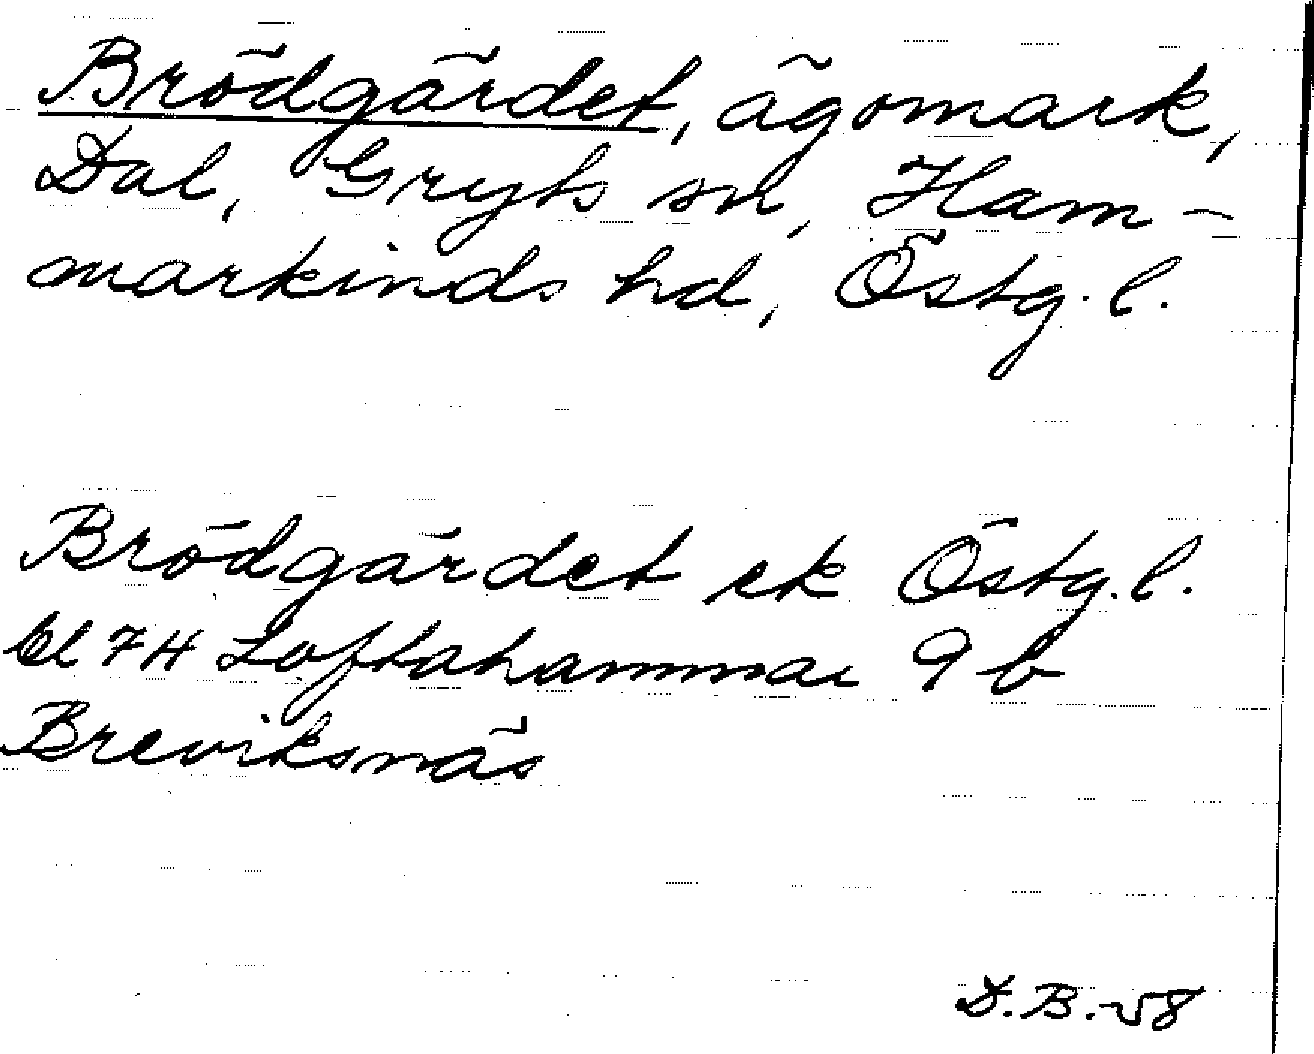 Brödgärdet, ägomark,
Dal, Gryts sn, Ham-
markinds hd, Östg. l.
Brödgärdet ek Östg. l.
bl 7H Loftahammar 9 b
Breviksnäs
D.B. -58